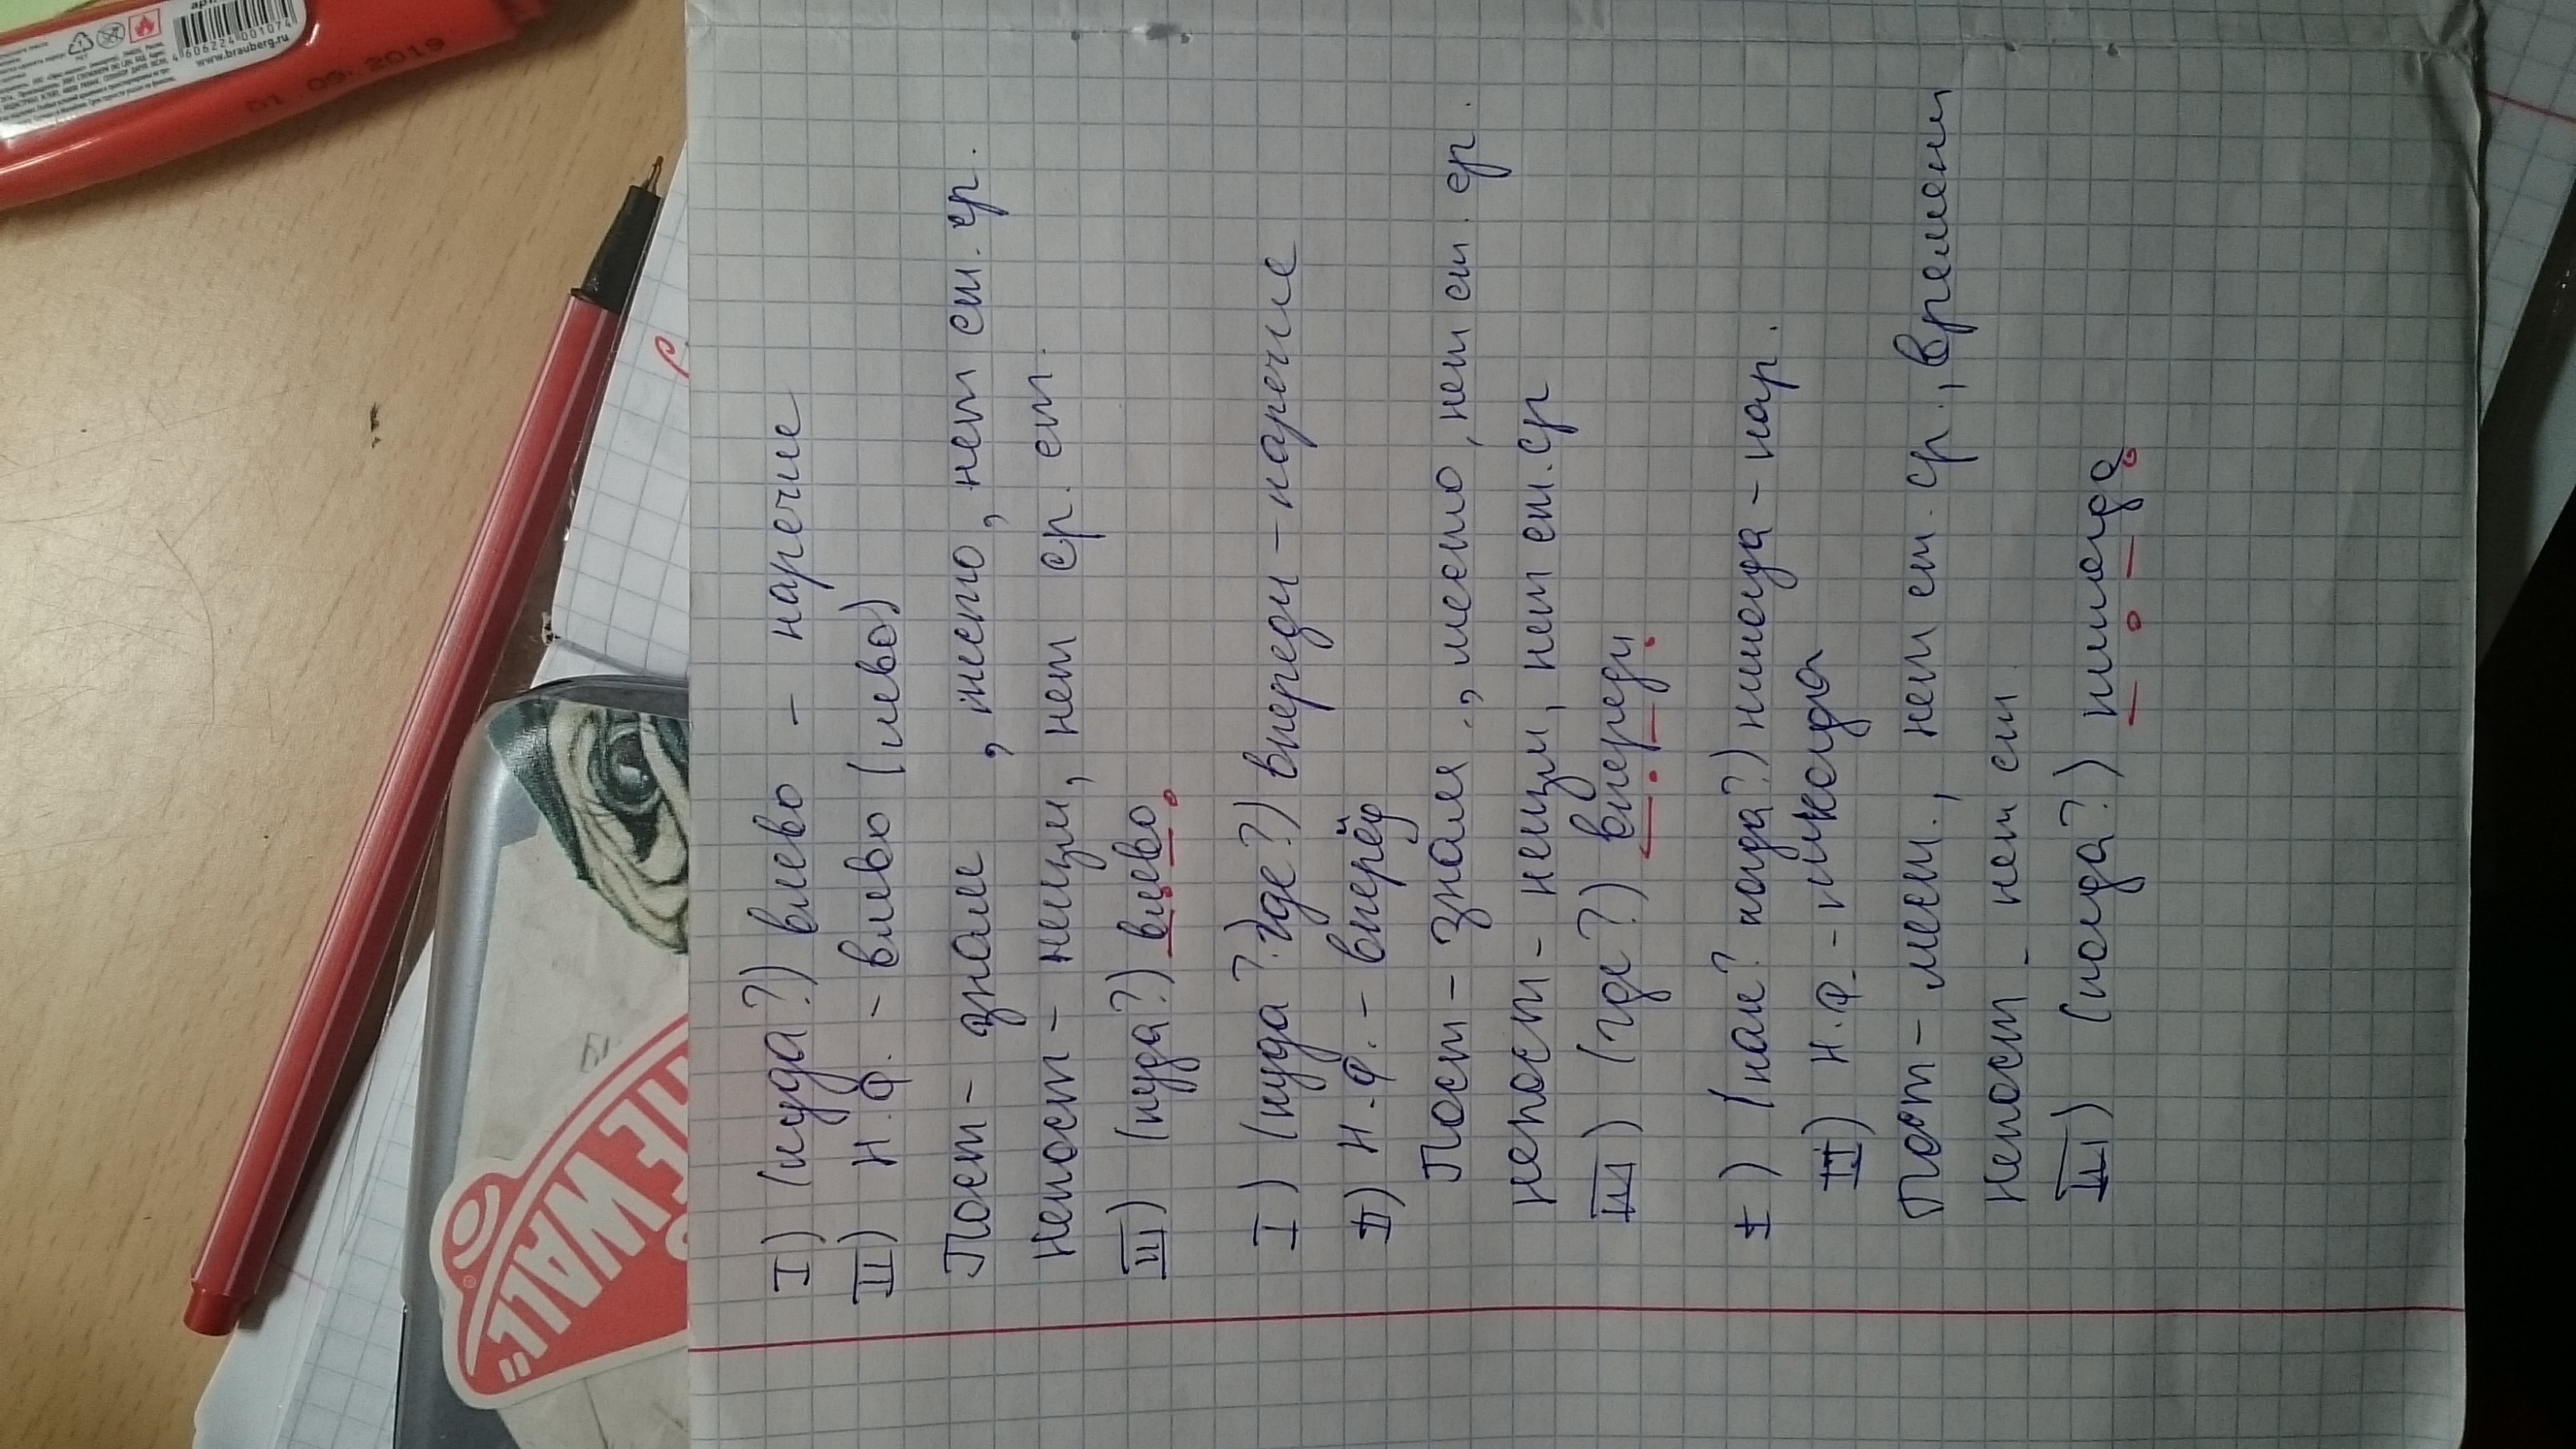 I) (куда?) влево – наречие
II) Н.Ф. – влево (лево)
Пост – знам , место, нет ст. ср.
Непост – неизм, нет ср. ст.
III) (куда?) влево
I) (куда? где?) впереди – наречие
II) Н.Ф. – вперёд
Пост – знам., место, нет ст. ср.
Непост – неизм, нет ст. ср
III) (где?) впереди
I) (как? когда?) никогда – нар.
II) Н.Ф. – никогда
Пост – мест., нет ст. ср., времени
Непост – нет ст.
III) (когда?) никогда
4606224001074
www.brauberg.ru
01.09.2019
THE WALL"